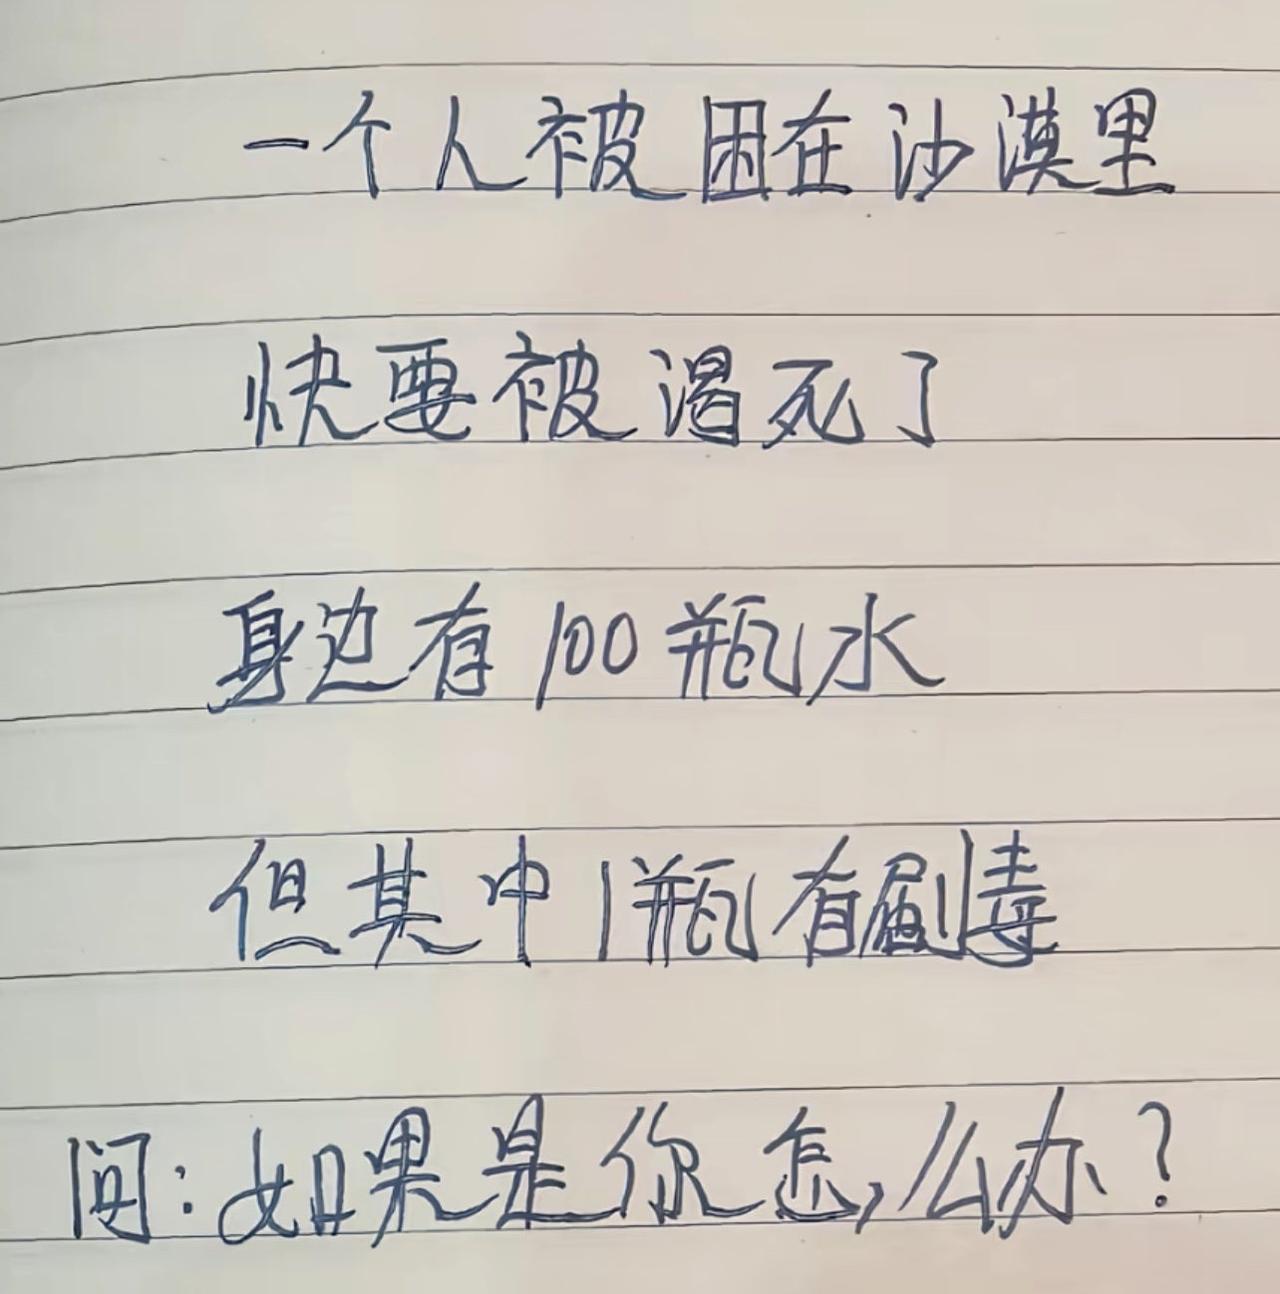 一个人被困在沙漠里
快要被渴死了
身边有100瓶水
但其中1瓶有剧毒
问:如果是你怎么办?